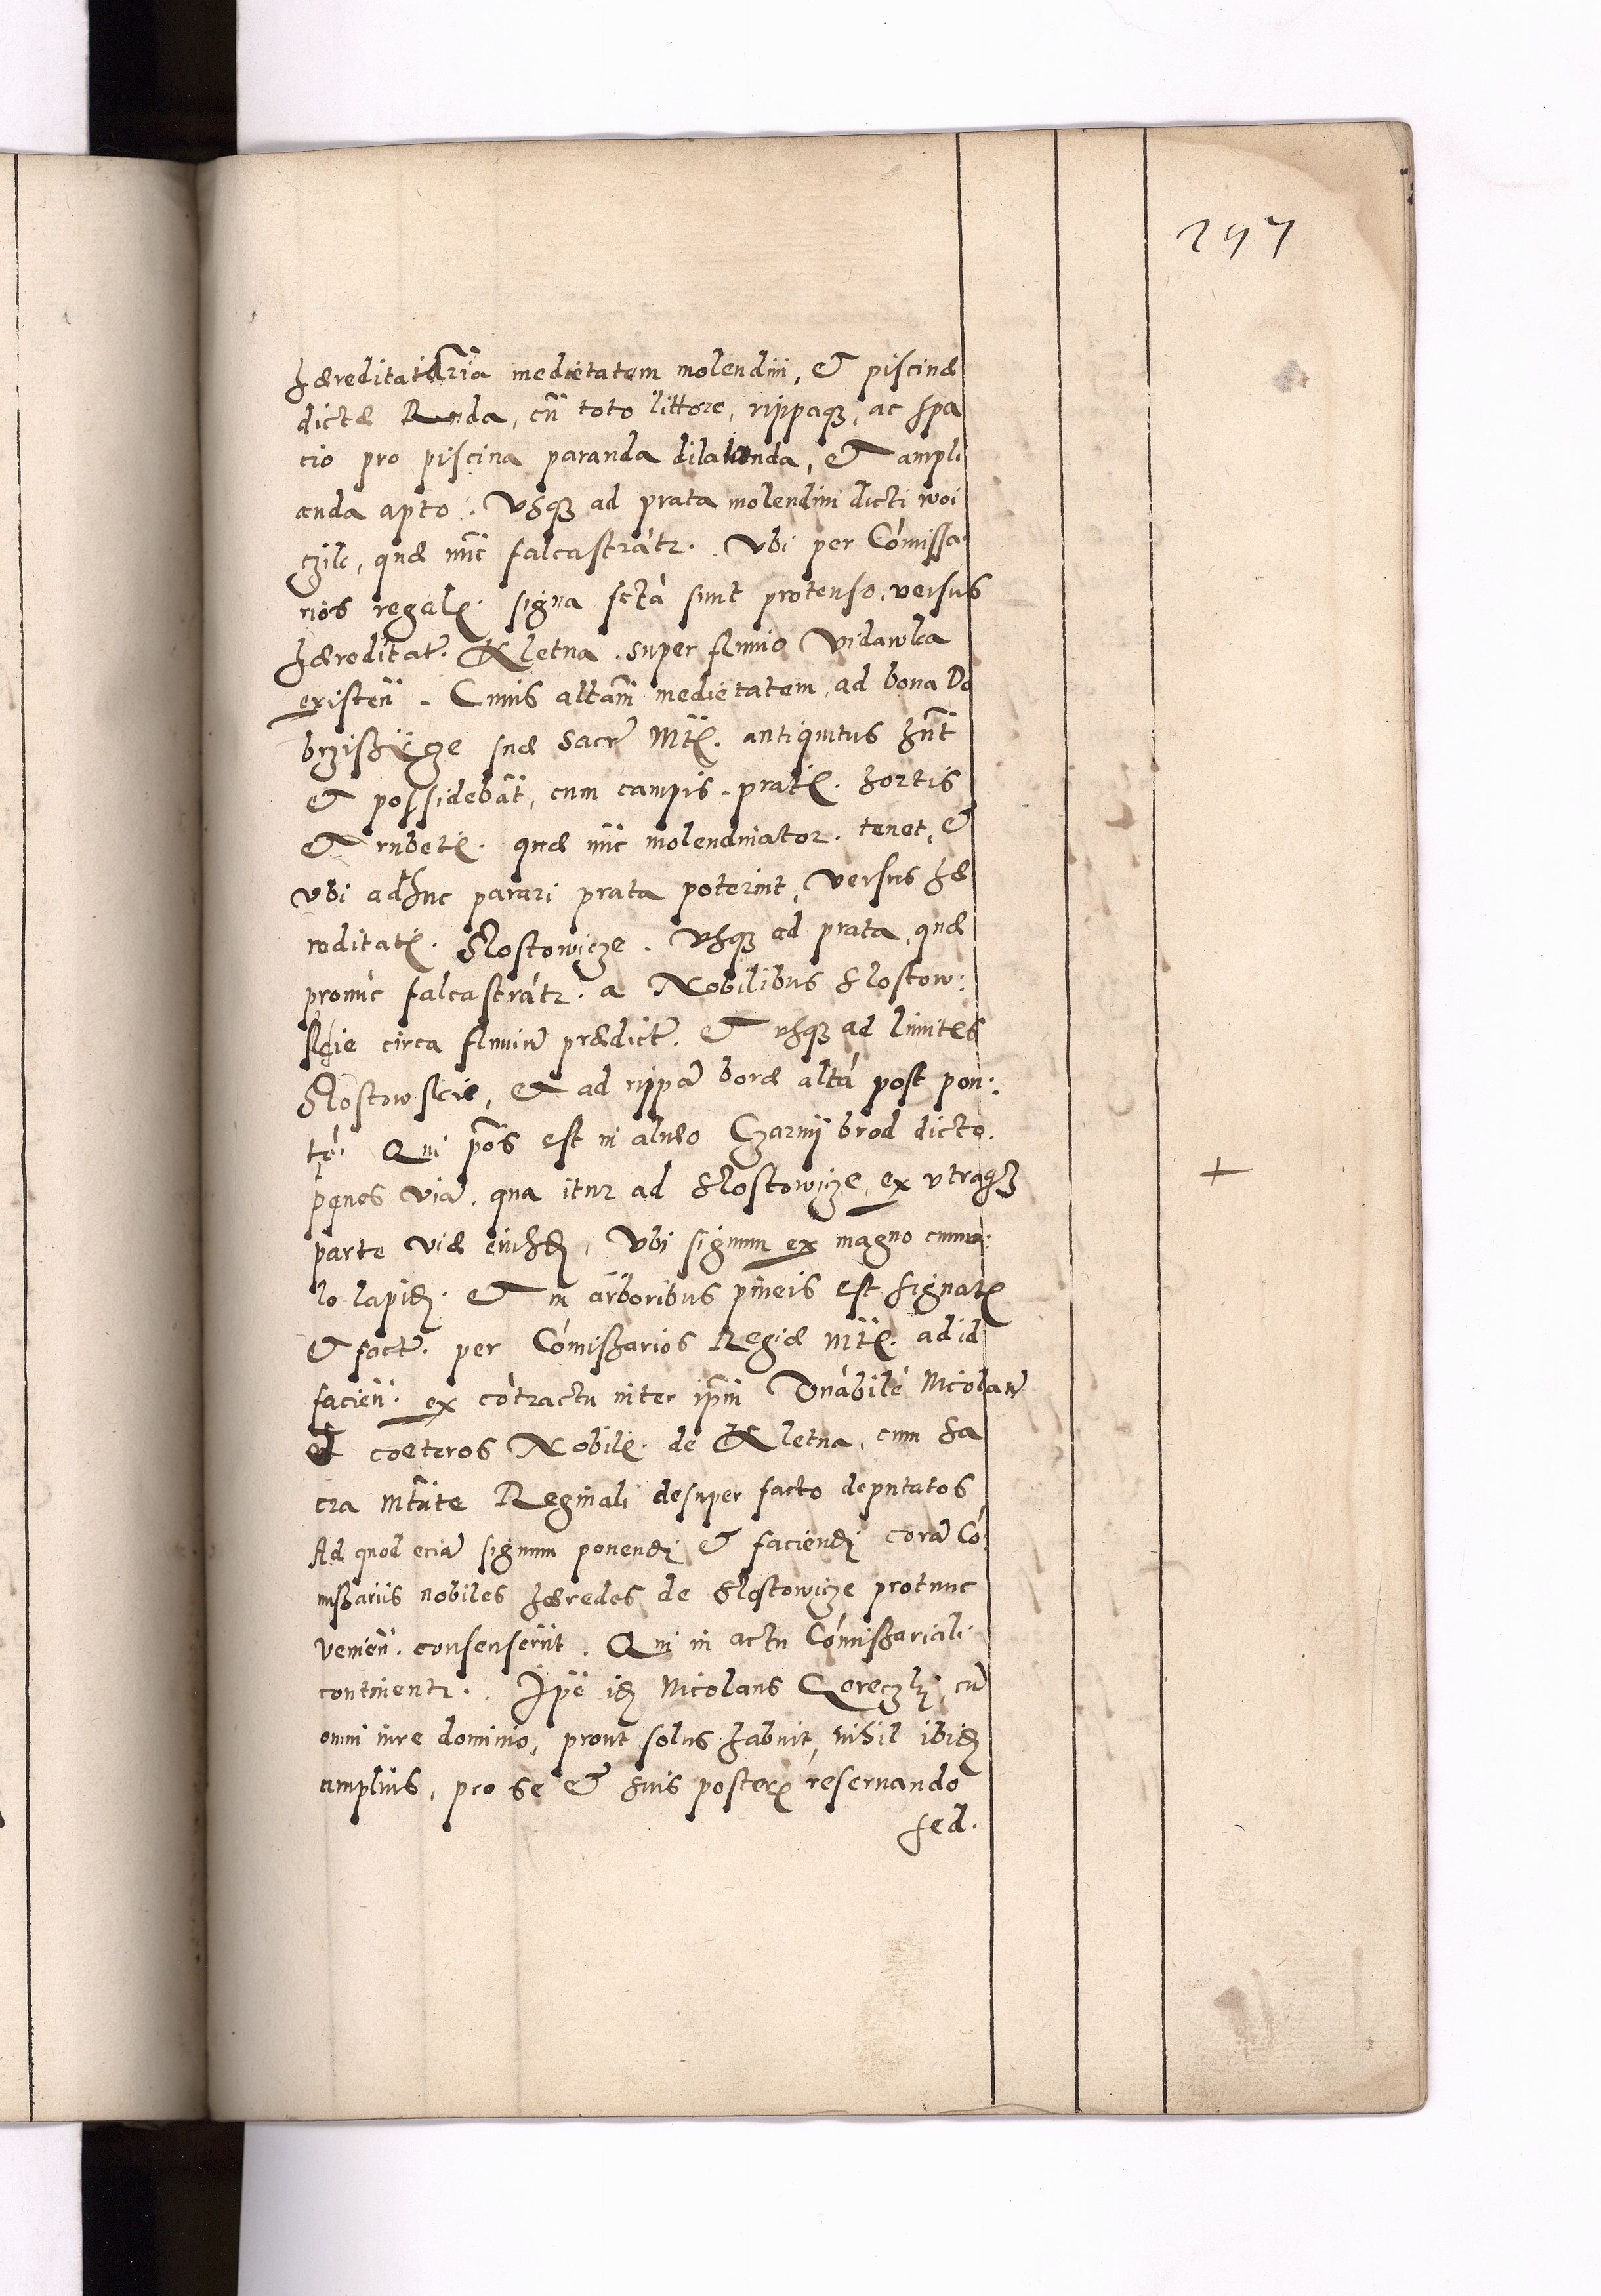 297
hæreditatariã medietatem molendini, et piscinæ
dictæ Ruda, cũ toto littore, rippaqꝫ, ac spa
cio pro piscina paranda dilatanda, et ampli
anda apto. Vsqꝫ ad prata molendini dicti woi
czik, quæ nũc falcastrãtr. Vbi per Cõmissa
rios regalꝭ. signa fctã sunt protenso, versus
hæreditatẽ. Kletna super fluuio Vidawka
existeñ. Cuius altam̃ medietatem, ad bona Do
brzisicze suæ Sacrẽ Mtꝭ. antiquitus hñt
et possidebãt, cum campis, pratꝭ. hortis
et rubetꝭ. quæ nũc molendinator. tenet, et
vbi adhuc parari prata poterint, versus hæ
reditatꝭ. Klostowicze. Vsqꝫ ad prata, quæ
pronũc falcastrãtr. a Nobilibus Klostow:
skie circa fluuiũ prædictũ. et vsqꝫ ad limites
Klostowskie, et ad rippã boræ altã post pon:
tẽ. Qui põs est in alueo Czarnÿ brod dicto.
penes viã. qua itur ad Klostowicze, ex vtraqꝫ
parte viæ eiusdẽ, Vbi signum ex magno cumu:
lo lapidũ. et in arboribus pineis est signatꝭ
et factũ. per Cõmissarios Regiæ Mtꝭ. ad id
facieñ. ex cõtractu inter ipm̃ Dnãbilẽ Nicolaũ
et coeteros Nobilꝭ. de Kletna, cum Sa
cra Mtãte Reginali desuper facto deputatos
Ad quod eciã signum ponendũ et faciendũ corã Cõ
missariis nobiles hæredes de Klostowicze protunc
venieñ. consenserũt. Qui in actu Cõmissariali
continentr. Ip̃e idẽ Nicolaus Gereczky cũ
omni iure dominio, prout solus habuit, nihil ibidẽ
amplius, pro se et suis posterꝭ reseruando
sed.